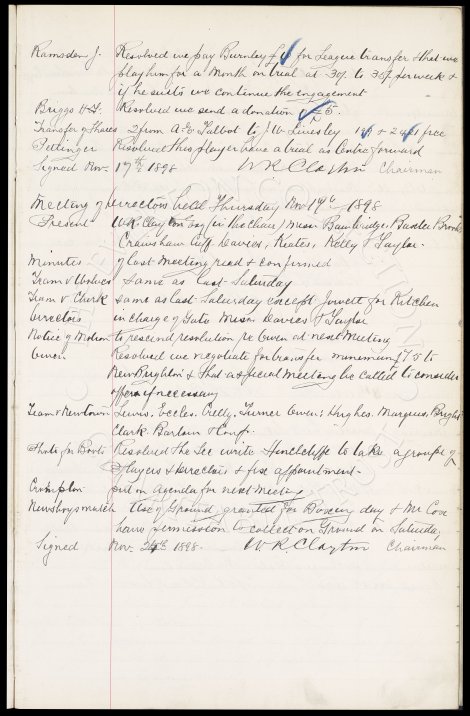 Ramsden J. Resolved we pay Burnley £ for League transfer & that we
play him for a Month on trial at 30/- to 35/- per week &
if he suits we continue the engagement
Briggs Resolved we send a donation £5.
Transfer of Shares 2 from A.E. Talbot to J.W. Livesley &
Pettinger Resolved this player have a trial as Centre forward
Signed Nov. 17th 1898 W R Clayton Chairman
Meeting of Directors held Thursday Nov 17th 1898
Present W.R. Clayton Esq (in the chair) Messrs Bainbridge, Baxter
Crawshaw Cuff Davies, Keates, Kelly & Taylor.
Minutes of last Meeting read & confirmed
Team v Wolves Same as last Saturday
Team v Chirk same as last Saturday except Jowett for Kitchen
Directors in charge of Messrs Davies & Taylor
Notice of Motion to rescind resolution re Owen at next Meeting
Owen Resolved we negotiate for transfer to
New Brighton & that a special meeting be called to consider
offers if necessary
Team v Newtown Lewis, Eccles. Turner Owen, Hughes. Marquis, Bright
Clark. Barlow &
Photo for Boots Resolved the Sec write Hinchcliffe to take a groupe of
Players & Directors & fix appointment.
Crompton put on Agenda for next Meeting
Newsboys match Use of Ground granted for Boxing day & Mr
have permission to collect on Ground on Saturday
Signed Nov. 24th 1898. W. R. Clayton Chairman